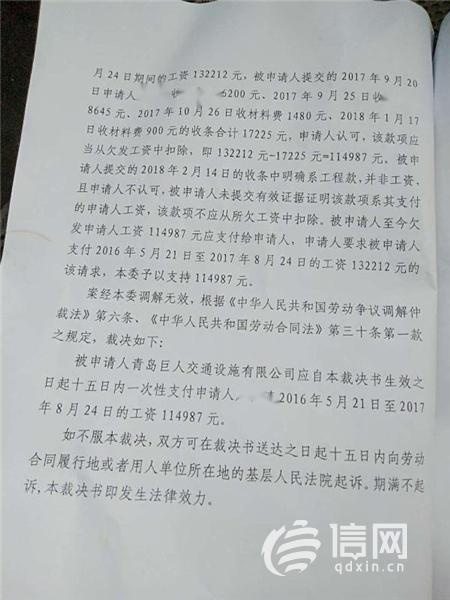 月24日期间的工资132212元，被申请人提交的2017年9月20
日申请人 收 6200元、2017年9月25日收
8645元、2017年10月26日收材料费1480元、2018年1月17
日收材料费900元的收条合计17225元，申请人认可，该款项应
当从欠发工资中扣除，即132212元-17225元=114987元。被申
请人提交的2018年2月14日的收条中明确系工程款，并非工资、
且申请人不认可，被申请人未提交有效证据证明该款项系其支付
的申请人工资，该款项不应从所欠工资中扣除。被申请人至今欠
发申请人工资114987元应支付给申请人，申请人要求被申请人
支付2016年5月21日至2017年8月24日的工资132212元的
该请求，本委予以支持114987元。
案经本委调解无效，根据《中华人民共和国劳动争议调解仲
裁法》第六条、《中华人民共和国劳动合同法》第三十条第一款
之规定，裁决如下：
被申请人青岛巨人交通设施有限公司应自本裁决书生效之
日起十五日内一次性支付申请人 2016年5月21日至2017
年8月24日的工资114987元。
如不服本裁决，双方可在裁决书送达之日起十五日内向劳动
合同履行地或者用人单位所在地的基层人民法院起诉。期满不起
诉，本裁决书即发生法律效力。
信网
qdxin.cn